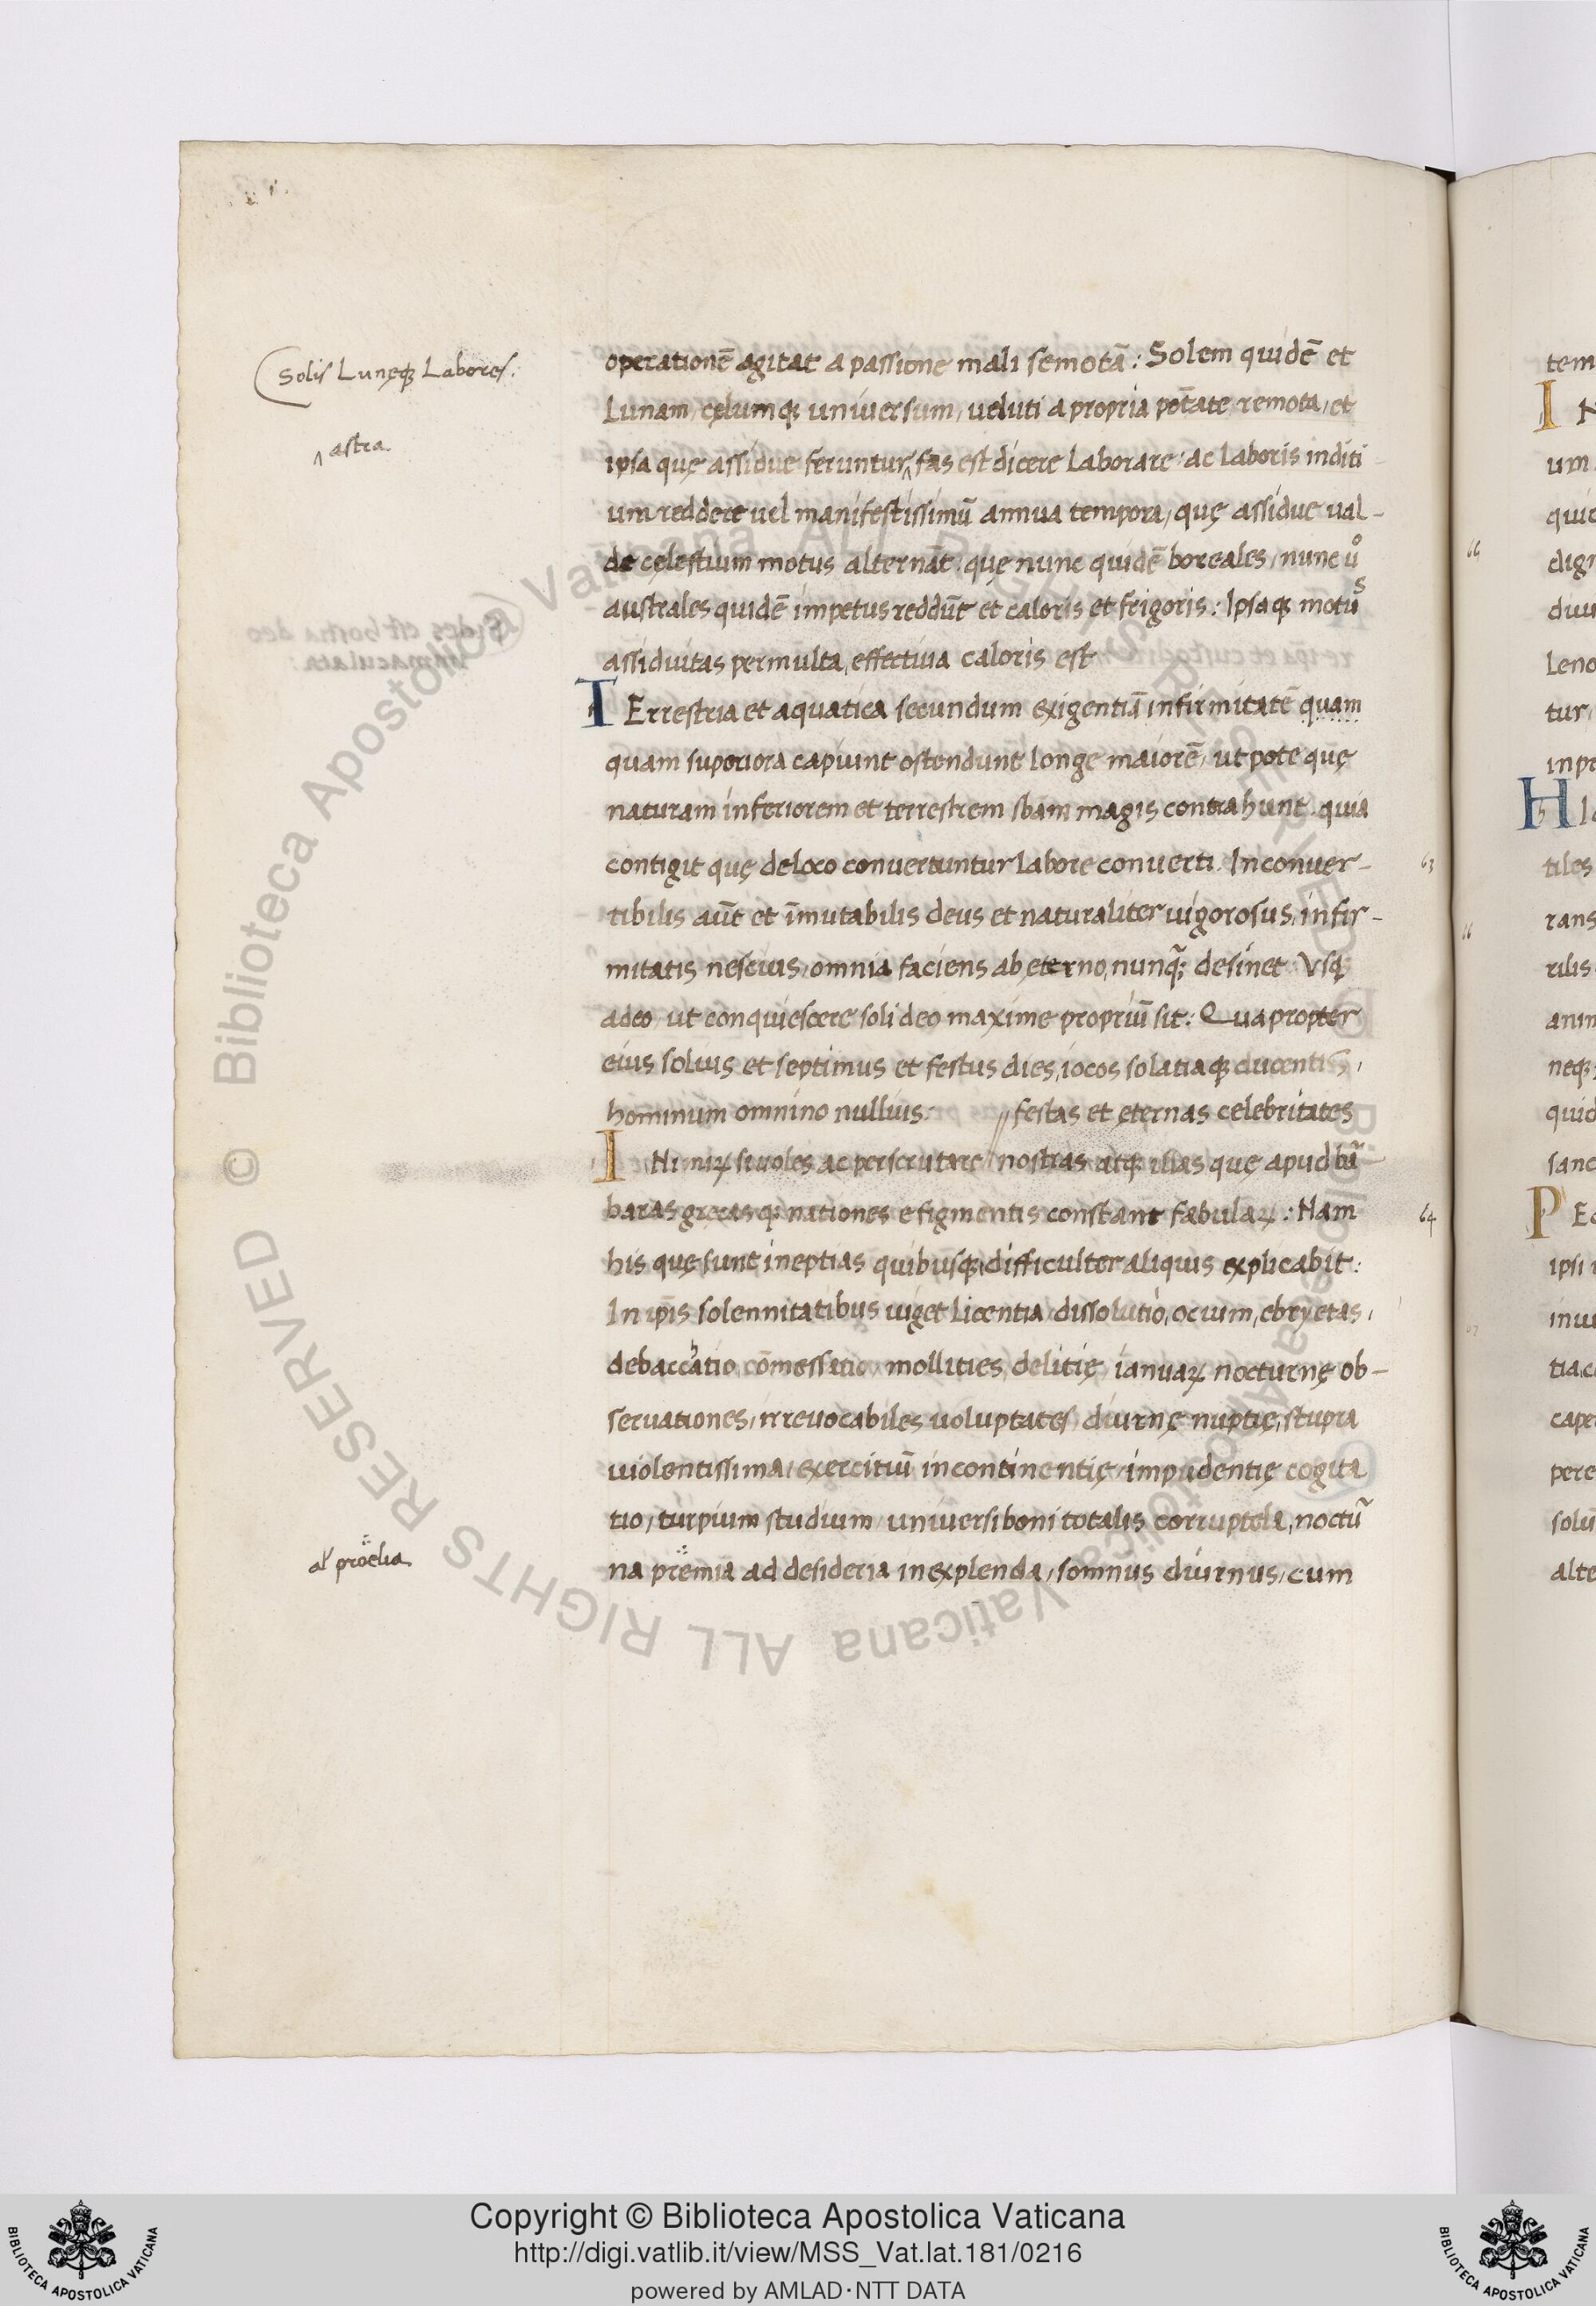 Solis Lunęq; Labores:
operationē agitat a passione mali semotā: Solem quidē et
Lunam, cęlumq; universum, veluti a propria potāte remota, et
astra
ipsa quę assidue feruntur, fas est dicere Laborare: ac Laboris inditi
um reddere vel manifestissimū annua tempora, quę assidue val-
de cęlestium motus alternāt. quę nunc quidē boreales, nunc uº
australes quidē impetus reddūt et caloris et frigoris: Ipsaq; motus
assiduitas permulta, effectiva caloris est
TErrestria et aquatica secundum exigentiā infirmitatē quam
quam superiora capiunt ostendunt longe maiorē, ut pote quę
naturam inferiorem et terrestrem sbam magis contrahunt. quia
contigit quę de loco convertuntur Labore converti. Inconver-
63
tibilis aūt et īmutabilis deus et naturaliter vigorosus, infir-
mitatis nescius, omnia faciens ab ęterno, nunq̄; desinet. Vsq;
adeo, ut conquiescere soli deo maxime propriū sit: Quapropter
eius solius et septimus et festus dies, iocos solatiaq; ducentis,
hominum omnino nullius: // festas et ęternas celebritates
INi niꝝ si voles ac perscrutare // nostras atq; illas quę apud bā
baras grecas q; nationes e figmentis constant fabulaꝝ: Nam
64
his quę sunt ineptias quibusq; difficulter aliquis explicabit:
In ip̄is solennitatibus viget Licentia, dissolutio, ocium, ebryetas,
debacchatio, cōmessatio, mollities, delitię, ianuaꝝ nocturnę ob-
servationes, irrevocabiles voluptates, diurnę nuptię, stupra
violentissima, exercitiū incontinentię, impudentię cogita
tio, turpium studium, universi boni totalis corruptela, noctū
al' proelia
na prēmia ad desideria inexplenda, somnus diurnus, cum
tem
I N
um
quid
66
dign
diui
Leno
tur,
inpe
HI
tiles
rans
rilis
anim
neq;
quid
sanc
P Ec
ipsi
inui
tia,c
cape
pere
solū
alte
Copyright © Biblioteca Apostolica Vaticana
http://digi.vatlib.it/view/MSS_Vat.lat.181/0216
powered by AMLAD·NTT DATA
BIBLIOTECA APOSTOLICA VATICANA
BIBLIOTECA APOSTOLICA VATICANA
© Biblioteca Apostolica Vaticana ALL RIGHTS RESERVED